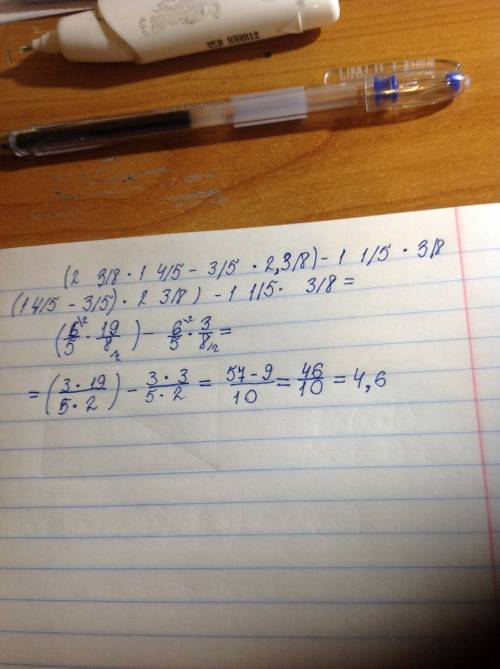 (2 3/8 · 1 4/5 - 3/5 · 2,3/8) - 1 1/5 · 3/8
(1 4/5 - 3/5) · 2 3/8 ) - 1 1/5 · 3/8 =
(6/5 · 19/8 ) - 6/5 · 3/8 =
= (3·19/5·2) - 3·3/5·2 = 57-9/10 = 46/10 = 4,6